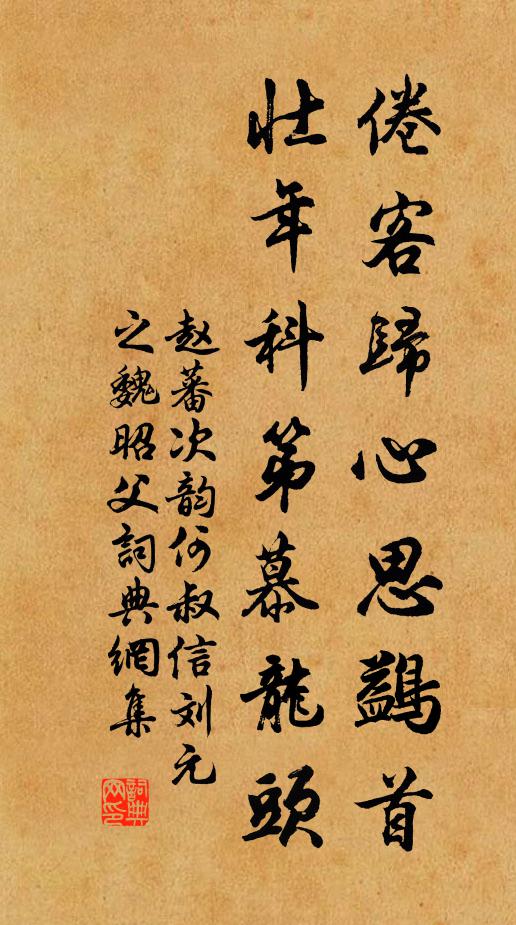 倦客歸心思鷁首
壯年科第慕龍頭
赵蕃次韵何叔信刘元
之魏昭父詞典網集
詞典
网印